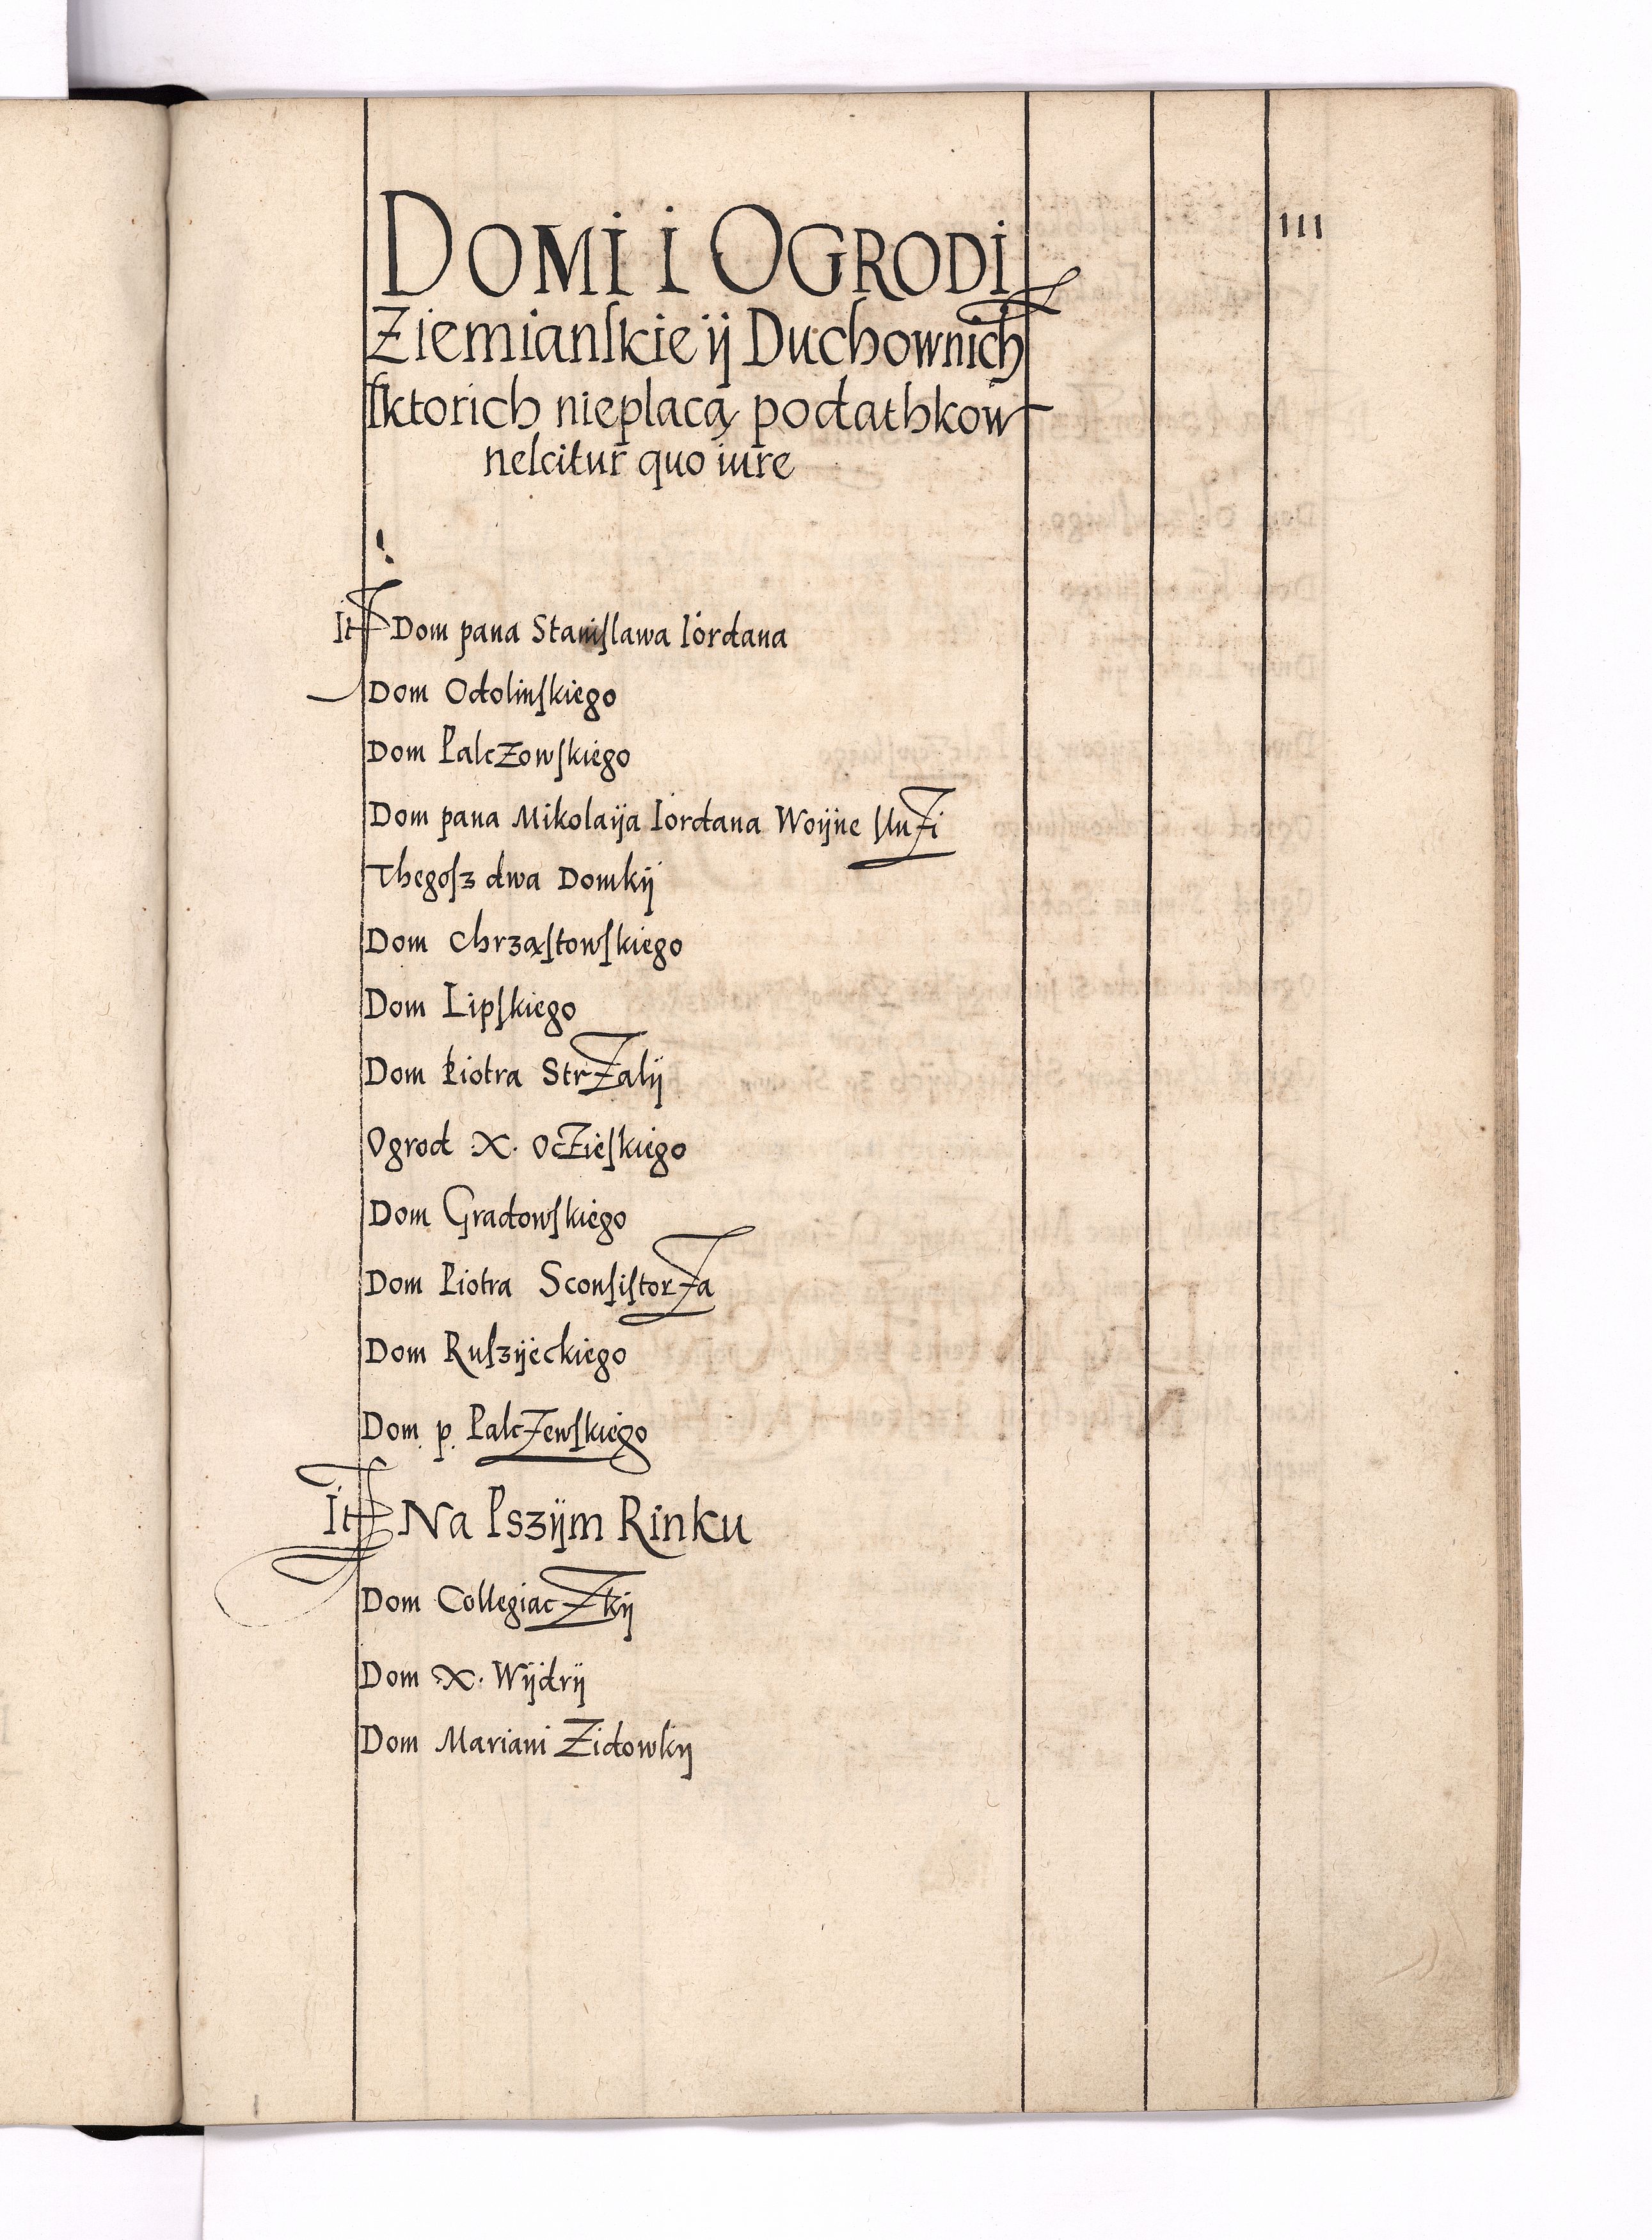 DOMI I OGRODI
III
Ziemianſkie ij Duchownich
ſktorich nieplacą podathkow
neſcitur quo iure
It Dom pana Staniſlawa Iordana
Dom Odolinſkiego
Dom Palczowſkiego
Dom pana Mikolaija Iordana Woijne ſluzi
Thegoſz dwa Domkij
Dom Chrząſtowſkiego
Dom Lipſkiego
Dom Piotra Strzalij
Ogrod X. Oczieſkiego
Dom Gradowſkiego
Dom Piotra Sconſiſtorza
Dom Ruſzijeckiego
Dom p. Palczewſkiego
It Na Pszijm Rinku
Dom Collegiaczkij
Dom X. Wijdrij
Dom Mariani Zidowkij